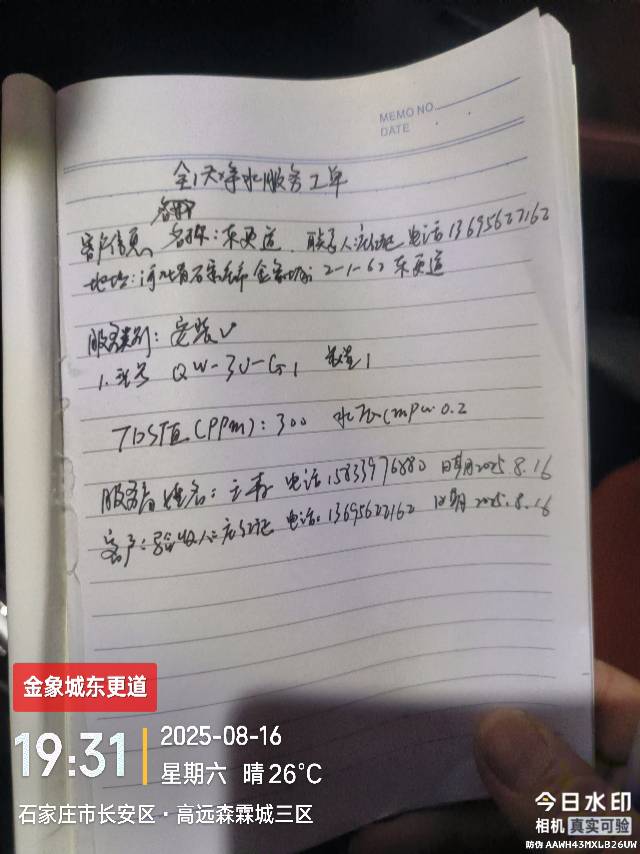 MEMO NO.
DATE
净水服务工单
客户信息、名称:东更道、联系人 电话13695627162
地址:河北省石家庄市金象城 2-1-62 东更道
服务类别:安装✓
1.型号 QW-3U-G1 数量1
TDS值(PPM):300 水压(mpa 0.2
服务者姓名: 电话15833976880 日期2025.8.16
客户:验收人: 电话:13695627162 日期2025.8.16
金象城东更道
19:31
2025-08-16
星期六 晴 26°C
石家庄市长安区·高远森霖城三区
今日水印
相机 真实可验
防伪 AAWH43MXLB26UW